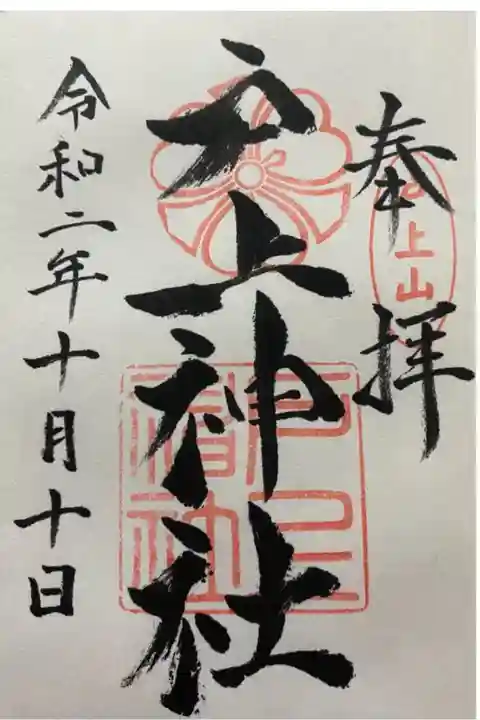 奉拝
戸上神社
令和二年十月十日
戸上山
戸上
神社